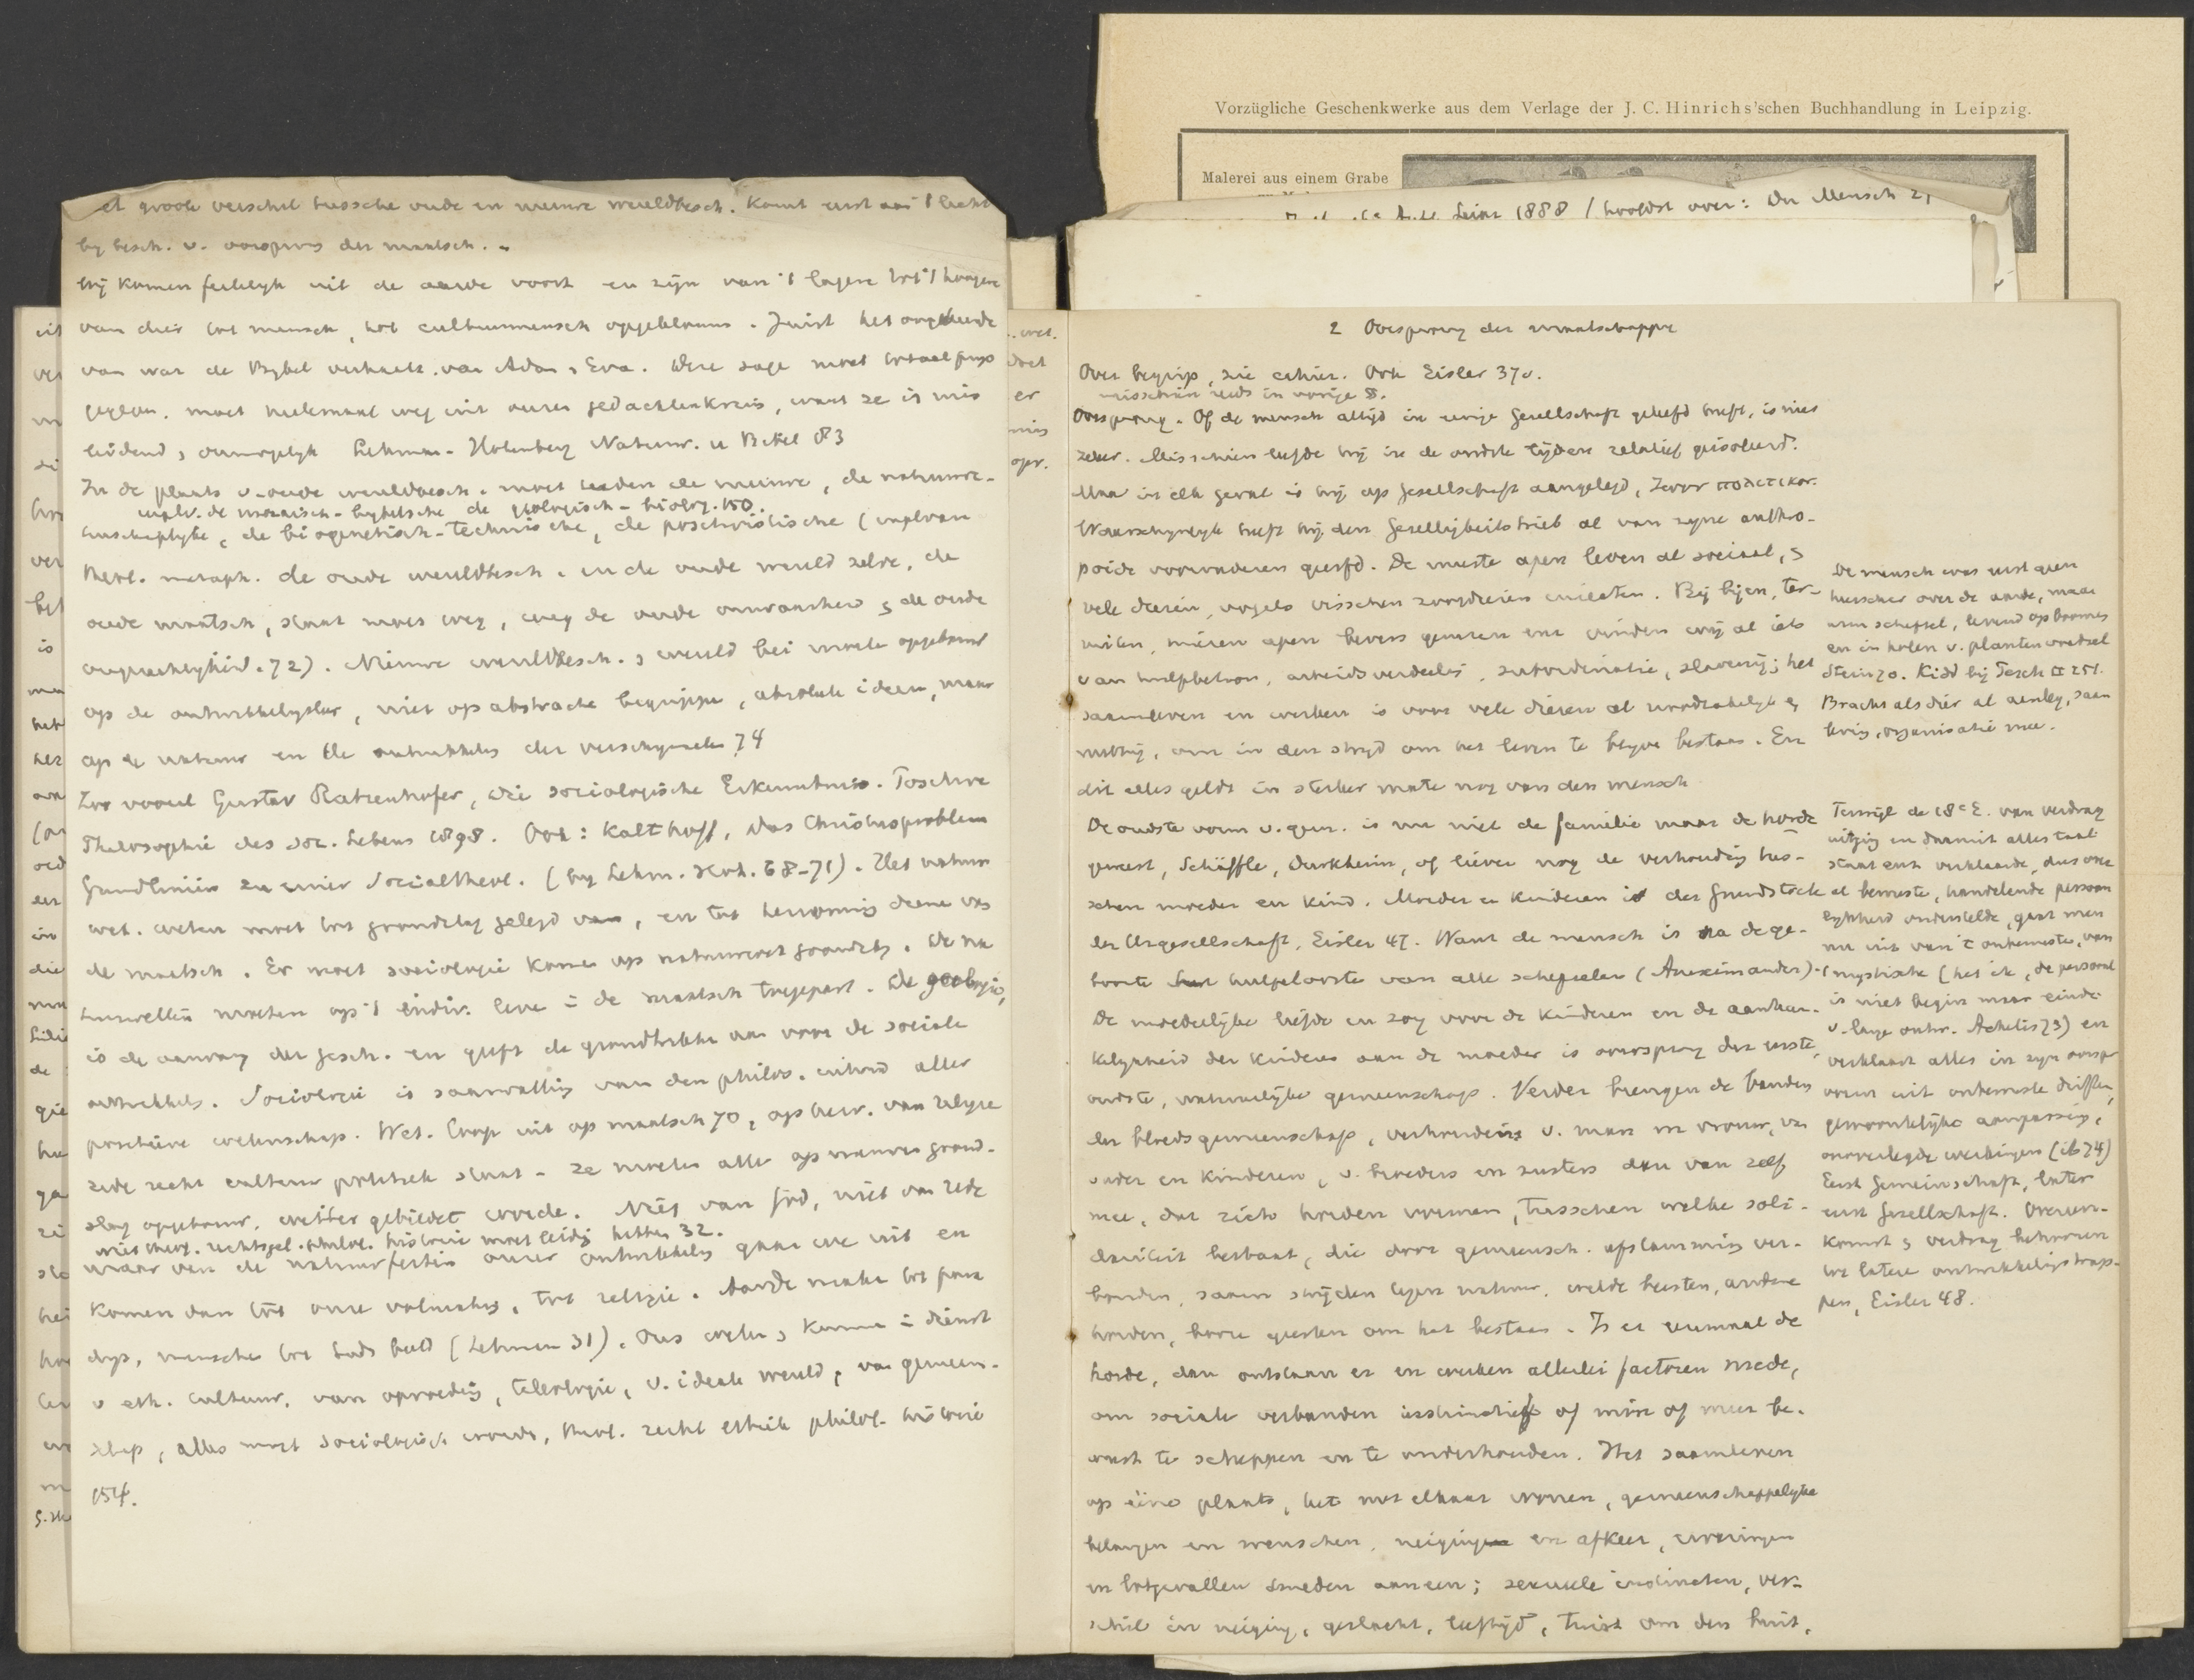 Vorzügliche Geschenkwerke aus dem Verlage der J. C. Hinrichs'schen Buchhandlung in Leipzig.
Malerei aus einem Grabe
1888 / hoofdst over: Der Mensch
et groote verschil tussche oude en nieuwe wereldbesch. Komt eerst aan 't licht
by besch. v. oorsprong der maatsch.
Wij komen feitelyk uit de aarde voort en zijn van 't lagere tot 't hoogere
van dier tot mensch, tot cultuurmensch opgeklommen. Juist het omgekeerde
van wat de Bybel verhaalt van Adam & Eva. Deze sage moet totaal prijs
gegeven. moet heelemaal weg uit onzen gedachtenkreis, want ze is mis
leidend, onmogelyk Lehmann-Hohenberg Naturw. u Bibel 83
In de plaats v. oude wereldbesch. moet treden de nieuwe, de natuurwe-
in plv. de mozaisch-bybelsche de geologisch-biolog. 150.
tenschaplyke, de biogenetisch-technische, de positivistische (in pl van
theol. metaph. de oude wereldbesch. en de oude wereld zelve, de
oude maatsch, staat moet weg, weg de oude onwaarheid & de oude
ongerechtigheid. 72). Nieuwe wereldbesch. & wereld bei moete opgebouwd
op de ontwikkelingsleer, niet op abstracte begrippen, absolute ideeen, maar
op de natuur en de ontwikkeling der verschynselen 74
Zoo vooral Gustav Ratzenhofer, Die sociologische Erkenntniss. Positive
Philosophie des soc. Lebens 1898. Ook: Kalthoff, Das Christusproblem
Grundlinien zu einer Socialtheol. (by Lehm. Hoh. 68-71). Het natuur
wet. weten moet tot grondslag gelegd, en tot kennis deene van
de maatsch. Er moet sociologie komen op natuurwet grondslag. De na
tuurwetten moeten op 't indiv. leve = de maatsch toegepast. De geologie,
is de aanvang der gesch. en geeft de grondtrekken aan voor de sociale
ontwikkel. Sociologie is saamvatting van den philos. inhoud aller
positieve wetenschap. Wet. loop uit op maatsch 70, op beur. van religie
zede recht cultuur politiek staat - ze moete alle op nieuwen grond-
slag opgebouwd, verder gebiedet worde. Niet van God, niet van rede
niet theol. rechtsgel. philol. historie moet leiding hebben 32.
maar van de natuurfeiten onzer ontwikkeling gaan we uit en
komen dan tot onze volmaking, tot religie. Aarde make tot para
dys, mensche tot Gods beeld (Lehmann 31). Ons weten & kunne = dienst
v eth. cultuur, van opvoeding, teleologie, v. ideale wereld, van gemeen-
schap, alles moet sociologisch worde, theol. recht ethiek philol. historie
154.
2 Oorsprong der maatschappij
Over begrip, zie cahier. Ook Eisler 370.
misschien reeds in vorige §.
Oorsprong. Of de mensch altijd in eenige Gesellschaft geleefd heeft, is niet
zeker. Misschien leefde hij in de oudste tijden relatief geisoleerd.
Maar in elk geval is hij op Gesellschaft aangelegd, ζωον πολιτικον.
Waarschynlyk heeft hij den Geselligkeitstrieb al van zyne anthro-
poide voorouderen geerfd. De meeste apen leven al sociaal, &
vele dieren, vogels visschen zoogdieren insecten. Bij bijen, ter-
mieten, mieren apen bevers gemzen enz vinden wij al iets
van hulpbetoon, arbeidsverdeeling, subordinatie, slavernij; het
saamleven en werken is voor vele dieren al noodzakelyk &
nuttig, om in den strijd om het leven te blyve bestaan. En
dit alles geldt in sterker mate nog van den mensch
De oudste vorm v. gem. is nu niet de familie maar de horde
geweest, Schäffle, Durkheim, of liever nog de verhouding tus-
schen moeder en kind. Moeder en kinderen is der Grundstock
der Urgesellschaft, Eisler 47. Want de mensch is na de ge-
boorte hulpelooste van alle schepselen (Anaximander).
De moederlijke liefde en zorg voor de kinderen en de aanhan-
kelykheid der kinderen aan de moeder is oorsprong der eerste,
oudste, natuurlijke gemeenschap. Verder brengen de banden
der bloedsgemeenschap, verhouding v. man en vrouw, van
ouder en kinderen, v. broeders en zusters dan van zelf
mee, dat zich horden vormen, tusschen welke soli-
dariteit bestaat, die door gemeensch. afstamming ver-
bonden, saam strijden tegen natuur, wilde beesten, andere
horden, voor goederen om het bestaan. Is er eenmaal de
horde, dan ontstaan er en werken allerlei factoren mede,
om sociale verbanden instinctief of min of meer be-
wust te scheppen en te onderhouden. Het saamleven
op eéne plaats, het met elkaar wonen, gemeenschappelyke
belangen en wenschen, neiging en afkeer, ervaringen
en lotgevallen smeden aaneen; sexueele instincten, ver-
schil in neiging, geslacht, leeftijd, twist om den buit,
De mensch was eerst geen
heerscher over de aarde, maar
arm schepsel, levend op boomen
en in holen v. planten voedsel
Stein 70. Kidd bij Tesch II 251.
Bracht als dier al aanleg, saam
leving, organisatie mee.
Terwijl de 18e E. van verdrag
uitging en daaruit alles taal
staat enz verklaarde, dus over
al bewuste, handelende persoon
lykheid onderstelde, gaat men
nu uit van 't onbewuste, van
't mystische (het ik, de persoonl
is niet begin maar einde
v. lange ontw. Achelis 73) en
verklaart alles in zyn oorspr
vorm uit onbewuste driften,
gewoontelijke aanpassing,
onoverlegde werkingen (ib 74)
Eerst Gemeinschaft, later
eerst Gesellschaft. Overeen-
komst & verdrag behooren
tot latere ontwikkelingstrap-
pen, Eisler 48.